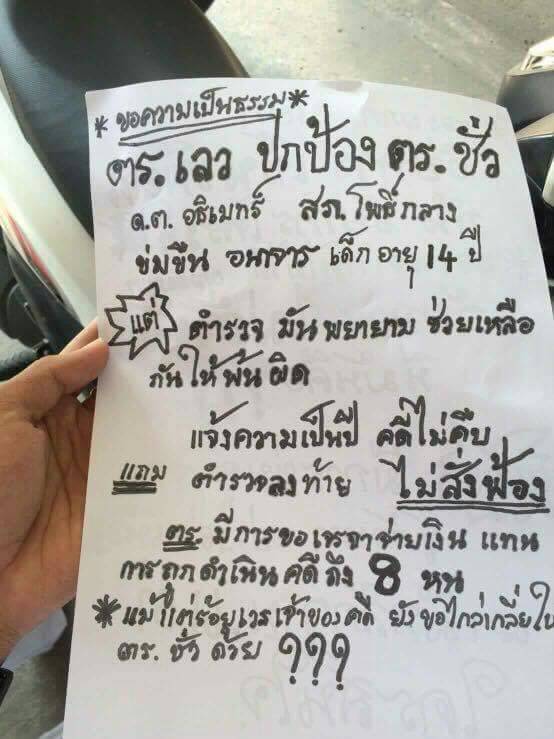 * ขอความเป็นธรรม *
ตร. เลว ปกป้อง ตร. ชั่ว
ด.ต. อธิเมทร์ สภ. โพธิ์กลาง
ข่มขืน อนาจาร เด็ก อายุ 14 ปี
แต่ ตำรวจ มันพยายาม ช่วยเหลือ
กันให้พ้นผิด
แจ้งความเป็นปี คดีไม่คืบ
แถม ตำรวจลงท้าย ไม่สั่งฟ้อง
ตร. มีการขอเจรจาจ่ายเงิน แทน
การถูกดำเนินคดีถึง 8 หน
* แม้แต่ร้อยเวรเจ้าของคดี ยังขอไกล่เกลี่ยให้
ตร. ชั่ว ด้วย ???